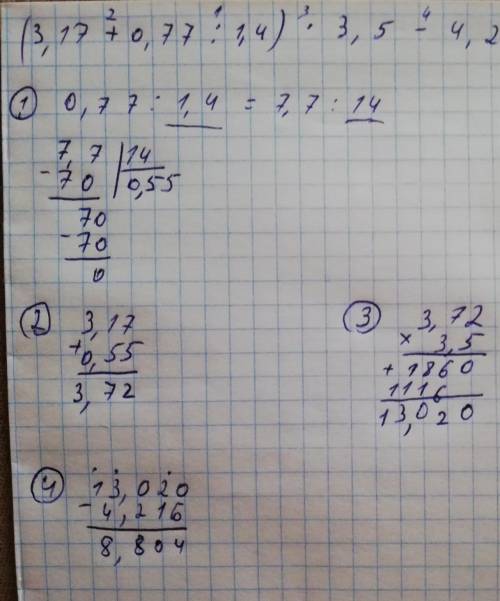 (3,17 + 0,77 : 1,4) · 3,5 - 4,2
2 1 3 4
1 0,77 : 1,4 = 7,7 : 14
7,7 14
- 70 0,55
70
- 70
0
2 3,17
+ 0,55
3,72
3 3,72
× 3,5
+ 1860
1116
13,020
4 13,020
- 4,216
8,804